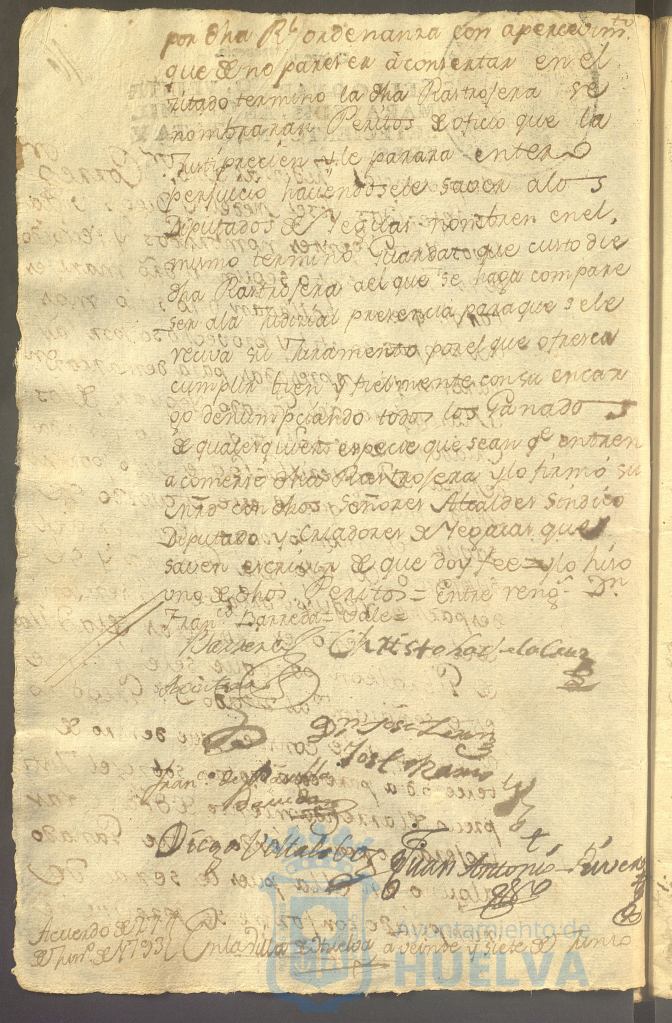 por dha Rl. ordenanza con apercevimto.
que de no parecer a consertar en el
citado termino la dha Rastrojera se
nombraran Peritos de oficio que la
Justiprecien y le parara entero
perjuicio haciendosele saver alos
Diputados de Yeguas nombren en el
mismo termino Guarda to que custodie
dha Rastrojera ael que se haga compare
ser ala Judicial precencia para que sele
reciva su Juramento por el que ofresca
cumplir bien y fielmente con su encar
go denunciando todos los Ganados
de qualesquiera especie que sean qe. entren
a comerse dha Rastrojera y lo firmó su
con dhos Señores Alcaldes Sindico
Diputado y Criadores de Yeguas que
saven escrivir de que doy fee = y lo hiso
uno de dhos Peritos = Entre rengs. Dn
Franco. Barreda = Vale =
Barreda Christobal de la Cruz
Dn Jose
Jose Ramos
Frano. de
Diego Villalobos
Juan Antonio
Acuerdo de 27
de Juno. de 1793
En la Villa de Huelva a veinte y siete de Junio
Ayuntamiento de
HUELVA